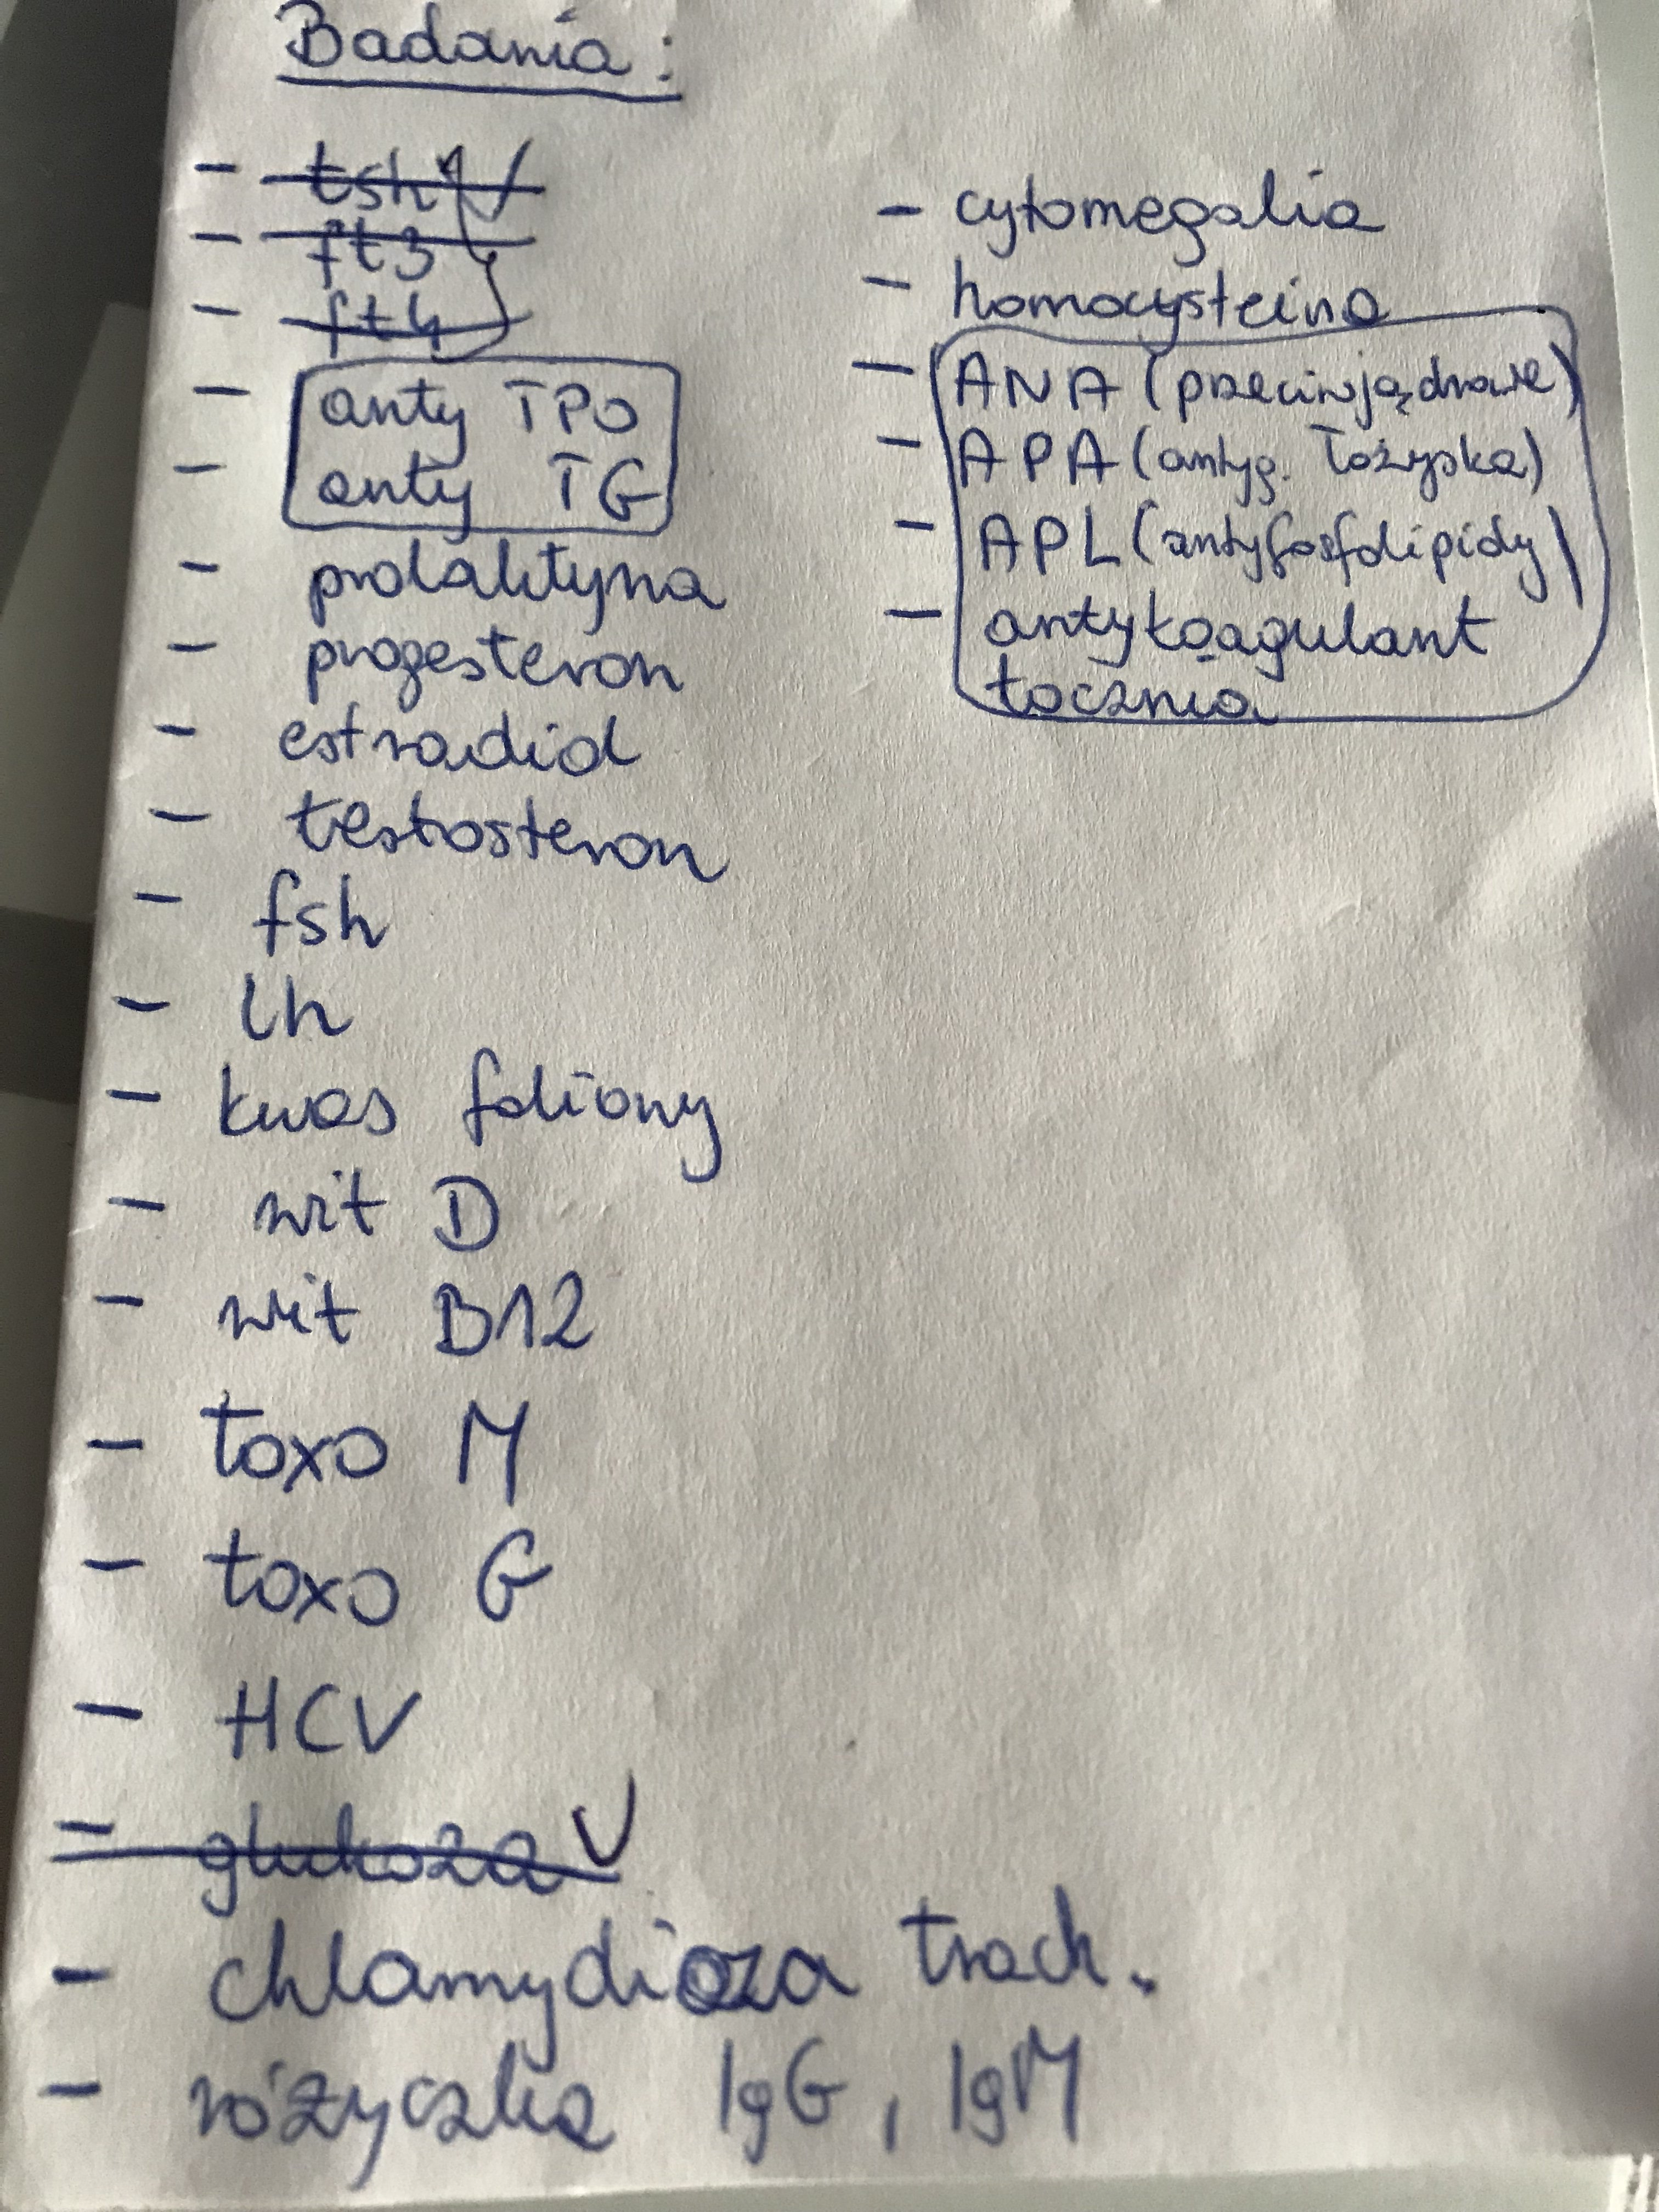 Badania:
- tsh ✓
- ft3
- ft4
- anty TPO
- anty TG
- prolaktyna
- progesteron
- estradiol
- testosteron
- fsh
- lh
- kwas foliowy
- wit D
- wit B12
- toxo M
- toxo G
- HCV
- glukoza V
- chlamydioza trach.
- różyczka IgG, IgM
- cytomegalia
- homocysteina
- ANA (przeciwjądrowe)
- APA (antyg. łożyska)
- APL (antyfosfolipidy)
- antykoagulant
tocznia